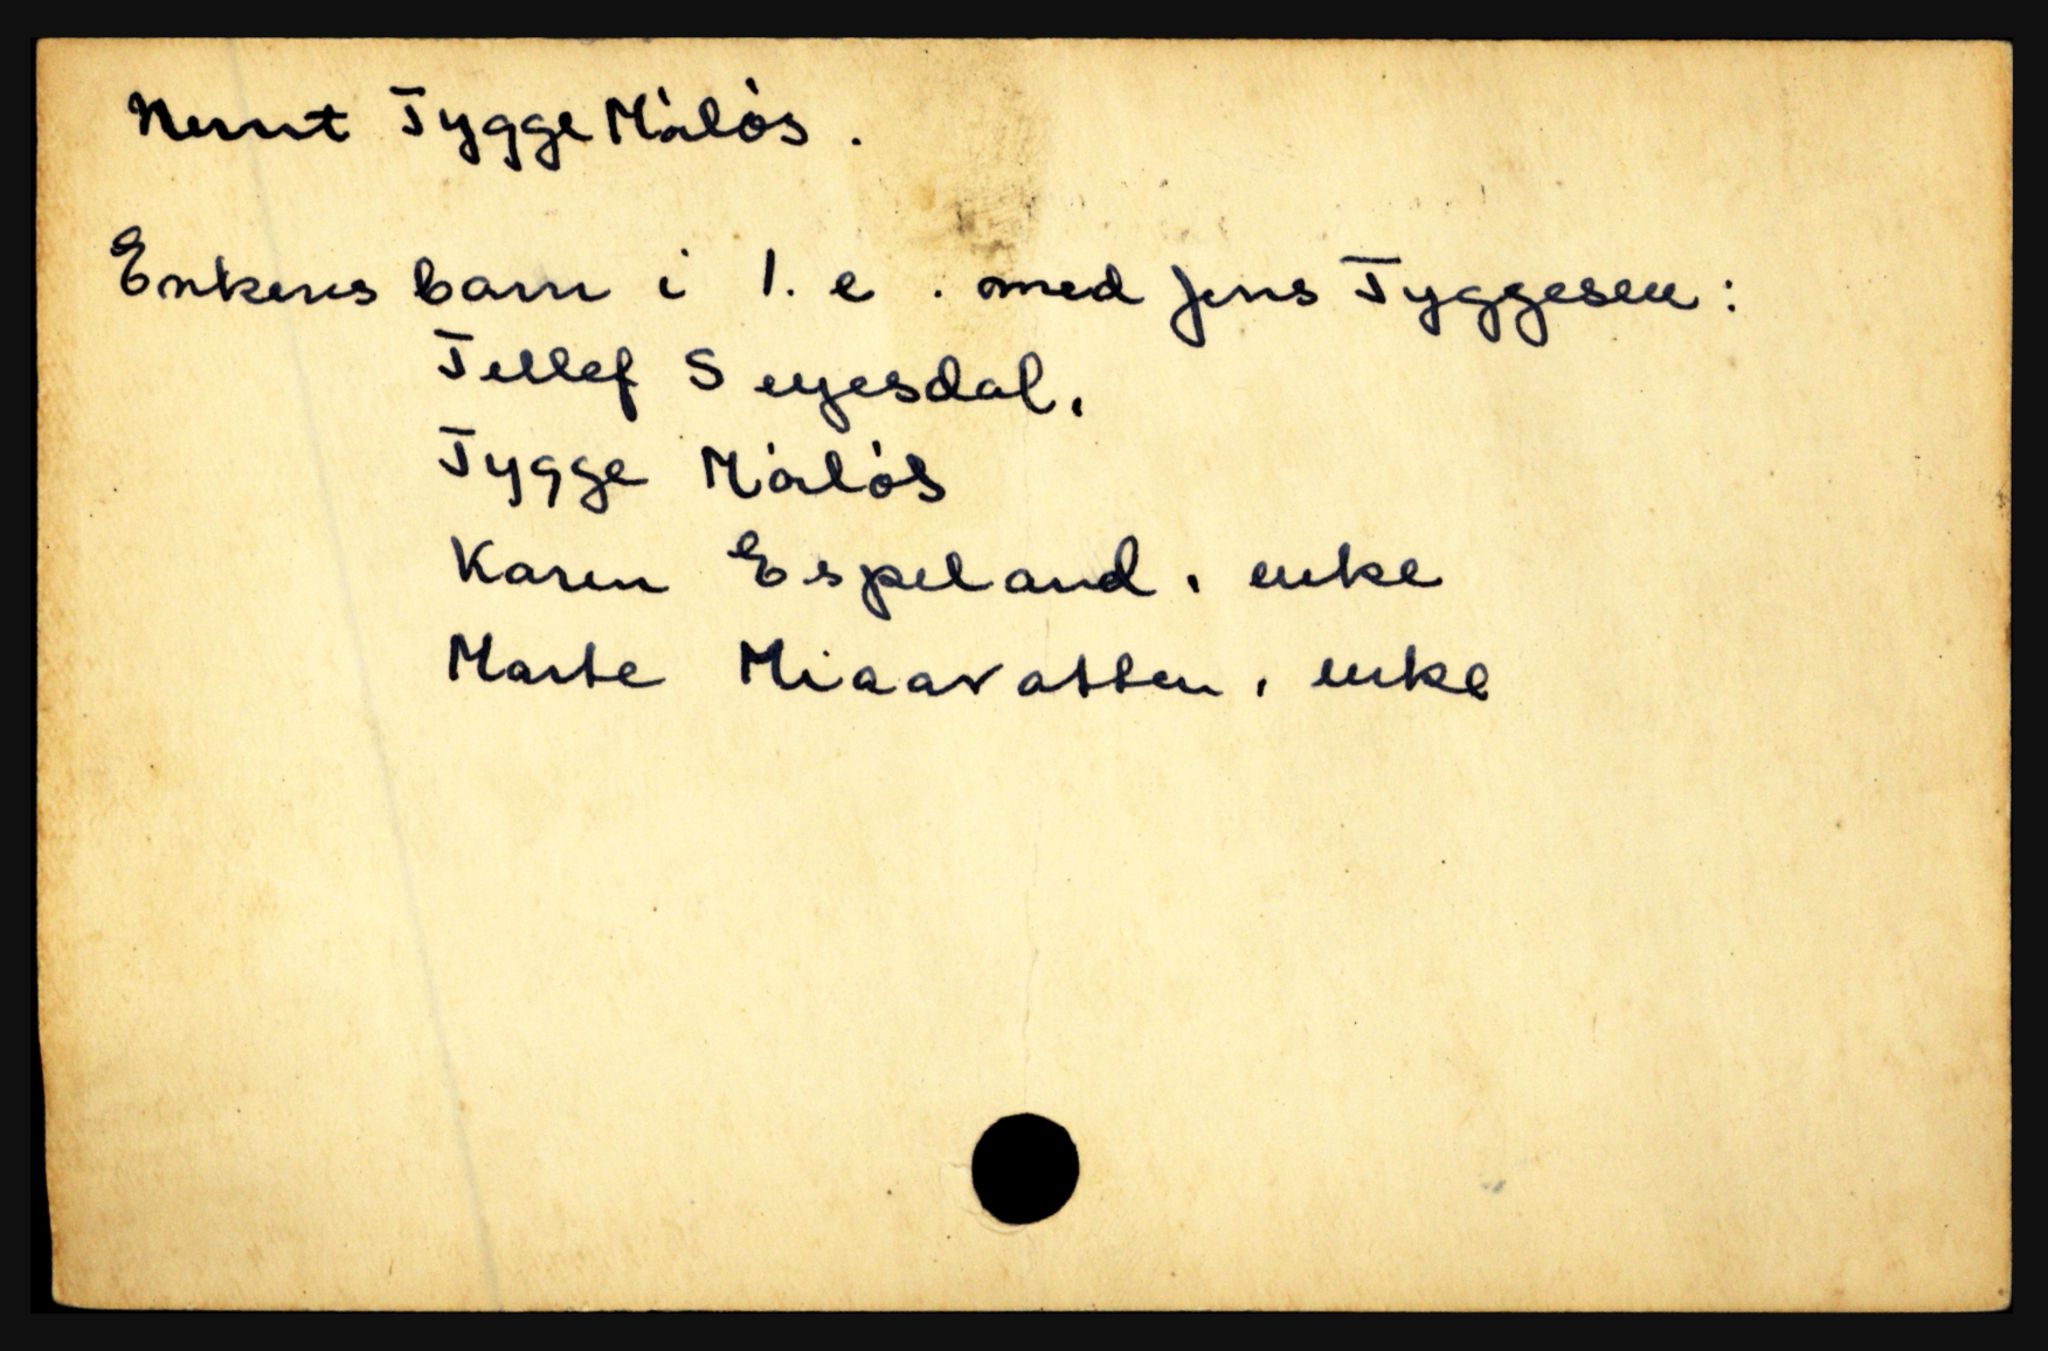 Nevnt Tygge Måløs.
Enkens barn i 1. e. med Jens Tyggesen:
Tellef Seyesdal,
Tygge Måløs
Karen Espeland, enke
Marte Miaavatten, enke